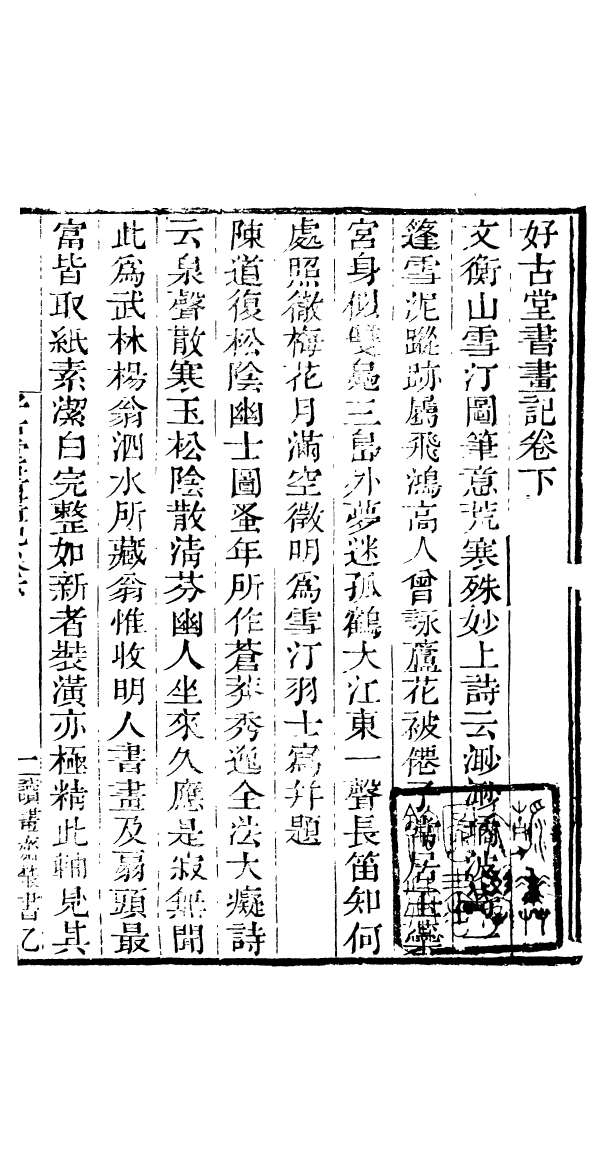 好古堂書畫記卷下
文衡山雪汀圖筆意荒寒殊妙上詩云渺渺
篷雪泥蹤跡鴈飛鴻高人曾詠蘆花被僊子常居玉蘂
宮身似雙鳧三島外夢迷孤鶴大江東一聲長笛知何
處照徹梅花月滿空徵明爲雪汀羽士寫并題
陳道復松陰幽士圖蚤年所作蒼莽秀逸全法大癡詩
云泉聲散寒玉松陰散清芬幽人坐來久應是寂無聞
此爲武林楊翁泗水所藏翁惟收明人書畫及扇頭最
富皆取紙素潔白完整如新者裝潢亦極精此軸見其
一讀畫齋叢書乙